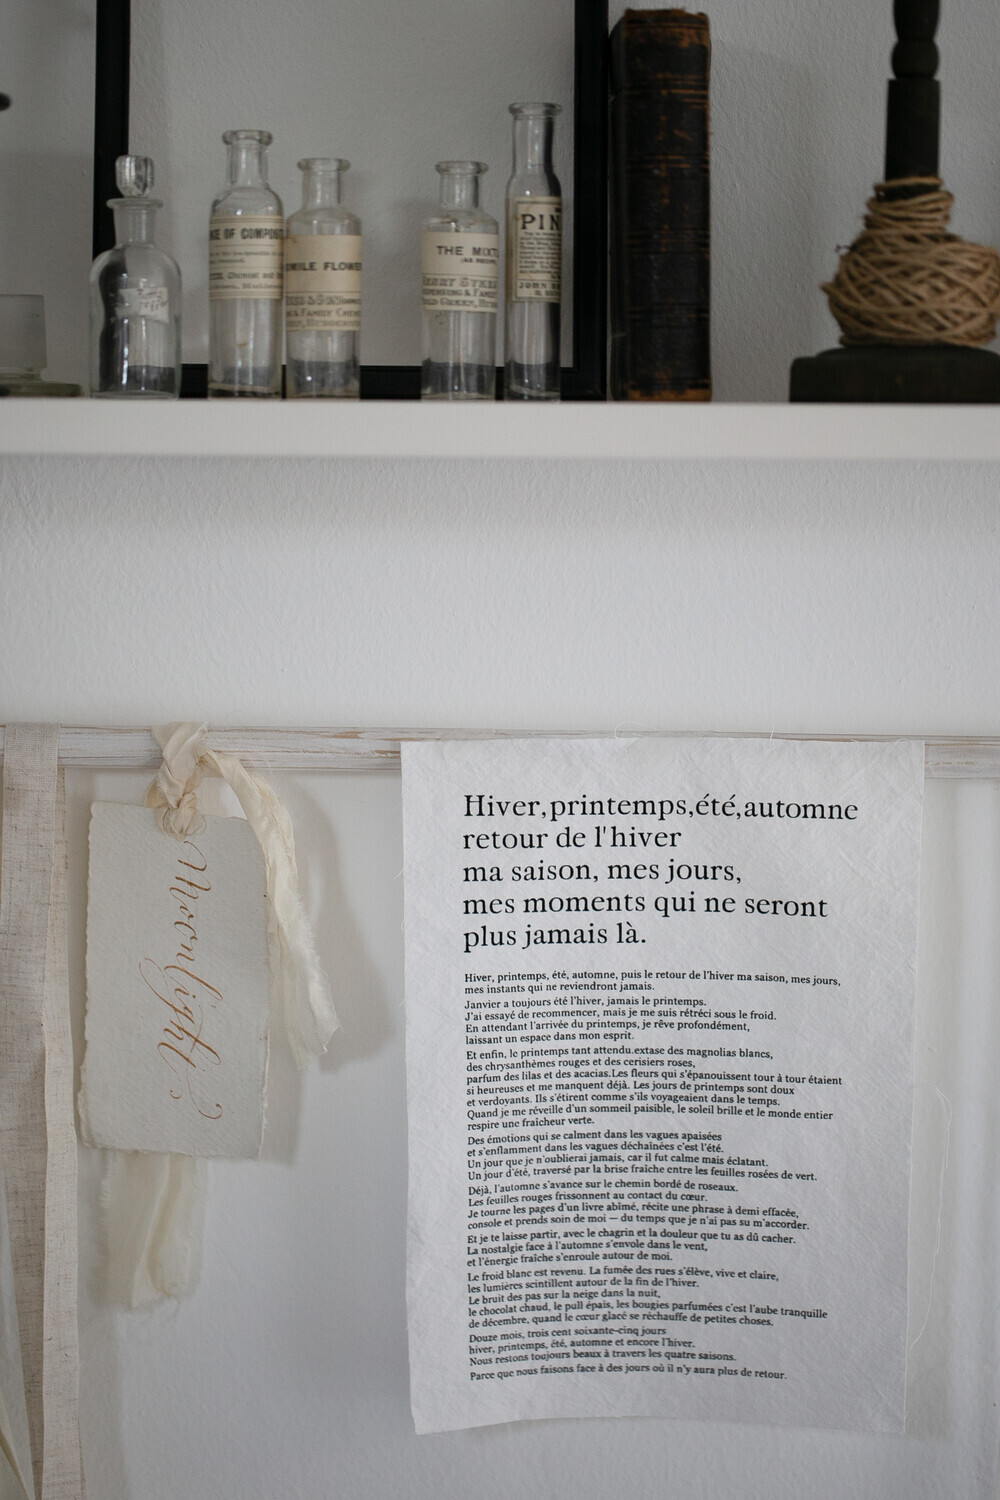 OF COMPOSIT
Chemist and
MILE FLOWE
& FAMILY CHEMI
THE MIXT
(AS BEFORE)
HENRY SYKES
DISPENSING & FAMILY
PIN
JOHN
Moonlight
Hiver,printemps,été,automne
retour de l'hiver
ma saison, mes jours,
mes moments qui ne seront
plus jamais là.
Hiver, printemps, été, automne, puis le retour de l'hiver ma saison, mes jours,
mes instants qui ne reviendront jamais.
Janvier a toujours été l'hiver, jamais le printemps.
J'ai essayé de recommencer, mais je me suis rétréci sous le froid.
En attendant l'arrivée du printemps, je rêve profondément,
laissant un espace dans mon esprit.
Et enfin, le printemps tant attendu.extase des magnolias blancs,
des chrysanthèmes rouges et des cerisiers roses,
parfum des lilas et des acacias.Les fleurs qui s'épanouissent tour à tour étaient
si heureuses et me manquent déjà. Les jours de printemps sont doux
et verdoyants. Ils s'étirent comme s'ils voyageaient dans le temps.
Quand je me réveille d'un sommeil paisible, le soleil brille et le monde entier
respire une fraîcheur verte.
Des émotions qui se calment dans les vagues apaisées
et s'enflamment dans les vagues déchaînées c'est l'été.
Un jour que je n'oublierai jamais, car il fut calme mais éclatant.
Un jour d'été, traversé par la brise fraîche entre les feuilles rosées de vert.
Déjà, l'automne s'avance sur le chemin bordé de roseaux.
Les feuilles rouges frissonnent au contact du cœur.
Je tourne les pages d'un livre abîmé, récite une phrase à demi effacée,
console et prends soin de moi — du temps que je n'ai pas su m'accorder.
Et je te laisse partir, avec le chagrin et la douleur que tu as dû cacher.
La nostalgie face à l'automne s'envole dans le vent,
et l'énergie fraîche s'enroule autour de moi.
Le froid blanc est revenu. La fumée des rues s'élève, vive et claire,
les lumières scintillent autour de la fin de l'hiver.
Le bruit des pas sur la neige dans la nuit,
le chocolat chaud, le pull épais, les bougies parfumées c'est l'aube tranquille
de décembre, quand le cœur glacé se réchauffe de petites choses.
Douze mois, trois cent soixante-cinq jours
hiver, printemps, été, automne et encore l'hiver.
Nous restons toujours beaux à travers les quatre saisons.
Parce que nous faisons face à des jours où il n'y aura plus de retour.